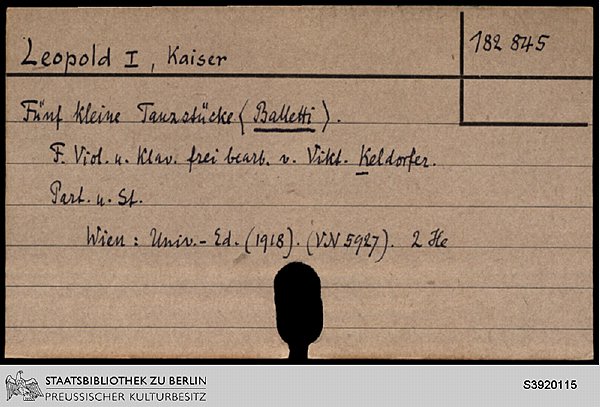 182 845
Leopold I, Kaiser
Fünf kleine Tanzstücke ⟨Balletti⟩.
F. Viol. u. Klav. frei bearb. v. Vikt. Keldorfer.
Part. u. St.
Wien: Univ.-Ed. (1918). (VN 5927). 2 He
STAATSBIBLIOTHEK ZU BERLIN
PREUSSISCHER KULTURBESITZ
S3920115